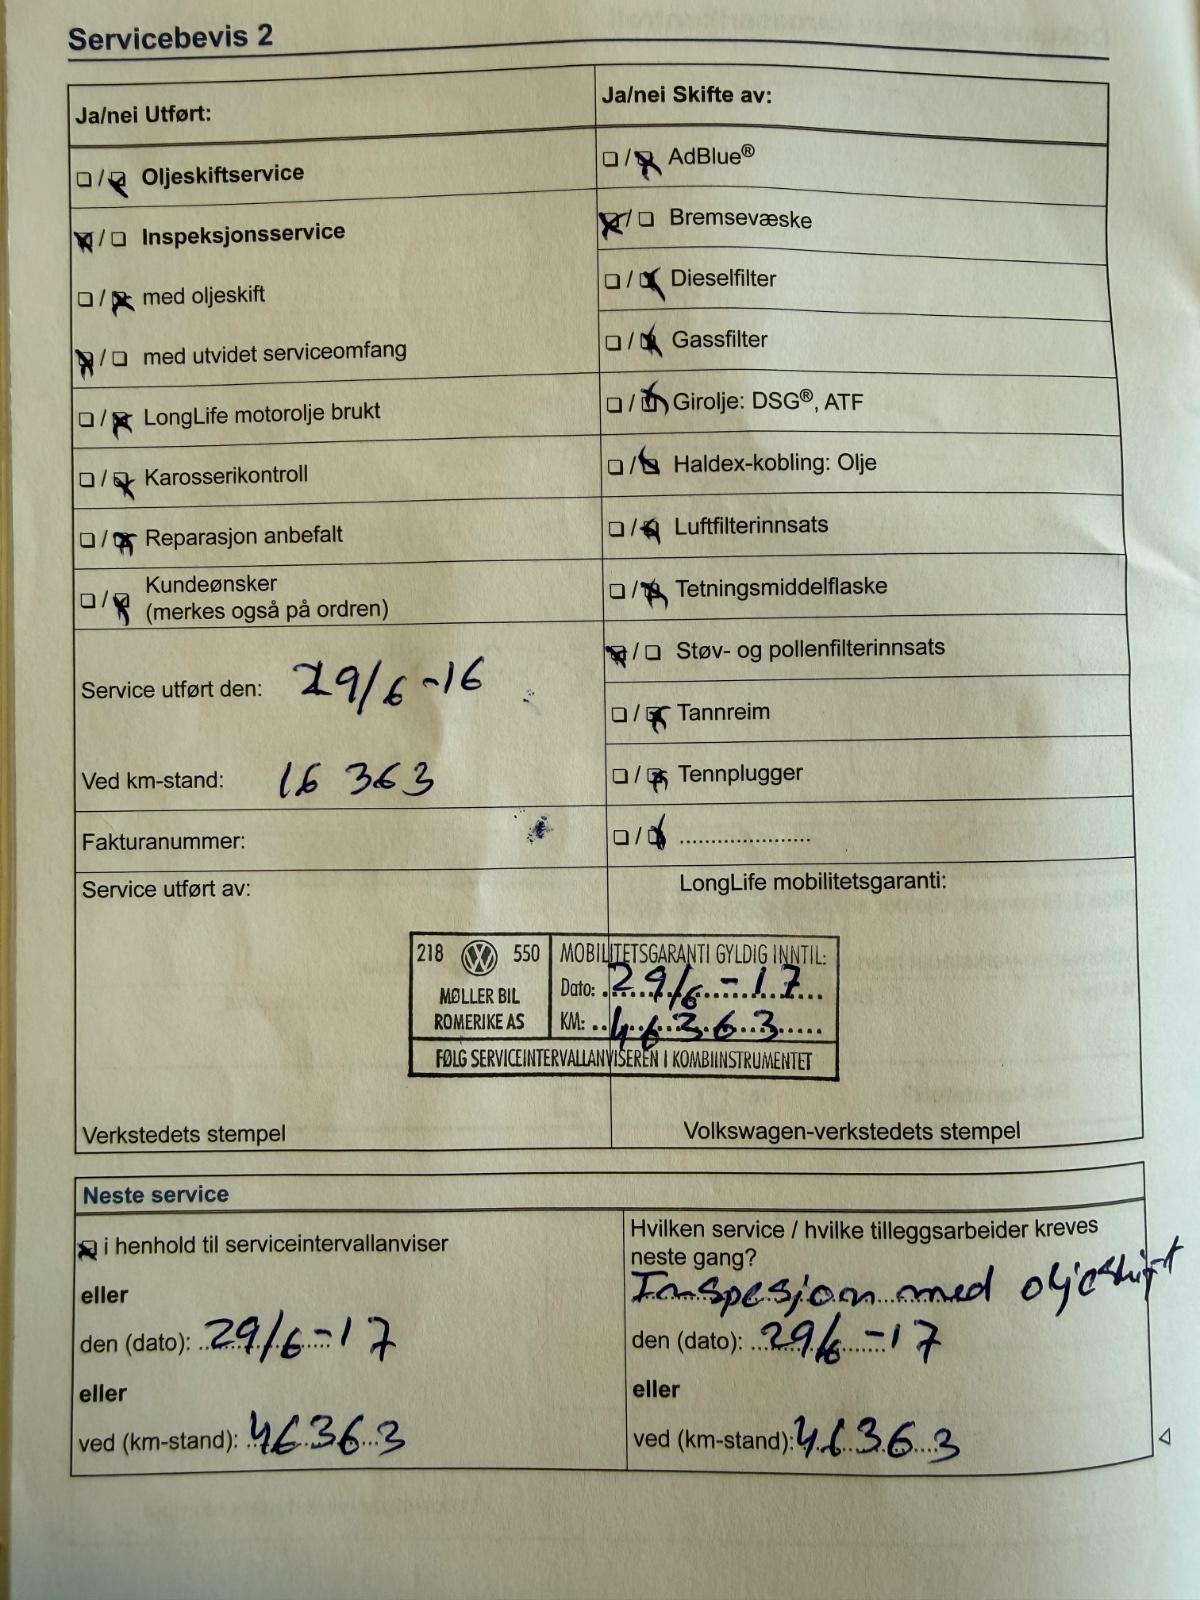 Servicebevis 2
Ja/nei Utført:
❏ / ❏ Oljeskiftservice
❏ / ❏ Inspeksjonsservice
❏ / ❏ med oljeskift
❏ / ❏ med utvidet serviceomfang
❏ / ❏ LongLife motorolje brukt
❏ / ❏ Karosserikontroll
❏ / ❏ Reparasjon anbefalt
❏ / ❏ Kundeønsker
(merkes også på ordren)
Service utført den: 29/6-16
Ved km-stand: 16 363
Fakturanummer:
Ja/nei Skifte av:
❏ / ❏ AdBlue®
❏ / ❏ Bremsevæske
❏ / ❏ Dieselfilter
❏ / ❏ Gassfilter
❏ / ❏ Girolje: DSG®, ATF
❏ / ❏ Haldex-kobling: Olje
❏ / ❏ Luftfilterinnsats
❏ / ❏ Tetningsmiddelflaske
❏ / ❏ Støv- og pollenfilterinnsats
❏ / ❏ Tannreim
❏ / ❏ Tennplugger
❏ / ❏ ......................
Service utført av:
LongLife mobilitetsgaranti:
218 VW 550
MØLLER BIL
ROMERIKE AS
MOBILITETSGARANTI GYLDIG INNTIL:
Dato: 29/6-17
KM: 46363
FØLG SERVICEINTERVALLANVISEREN I KOMBIINSTRUMENTET
Verkstedets stempel
Volkswagen-verkstedets stempel
Neste service
❏ i henhold til serviceintervallanviser
eller
den (dato): 29/6-17
eller
ved (km-stand): 46363
Hvilken service / hvilke tilleggsarbeider kreves
neste gang?
Inspesjon med oljeskift
den (dato): 29/6-17
eller
ved (km-stand): 46363